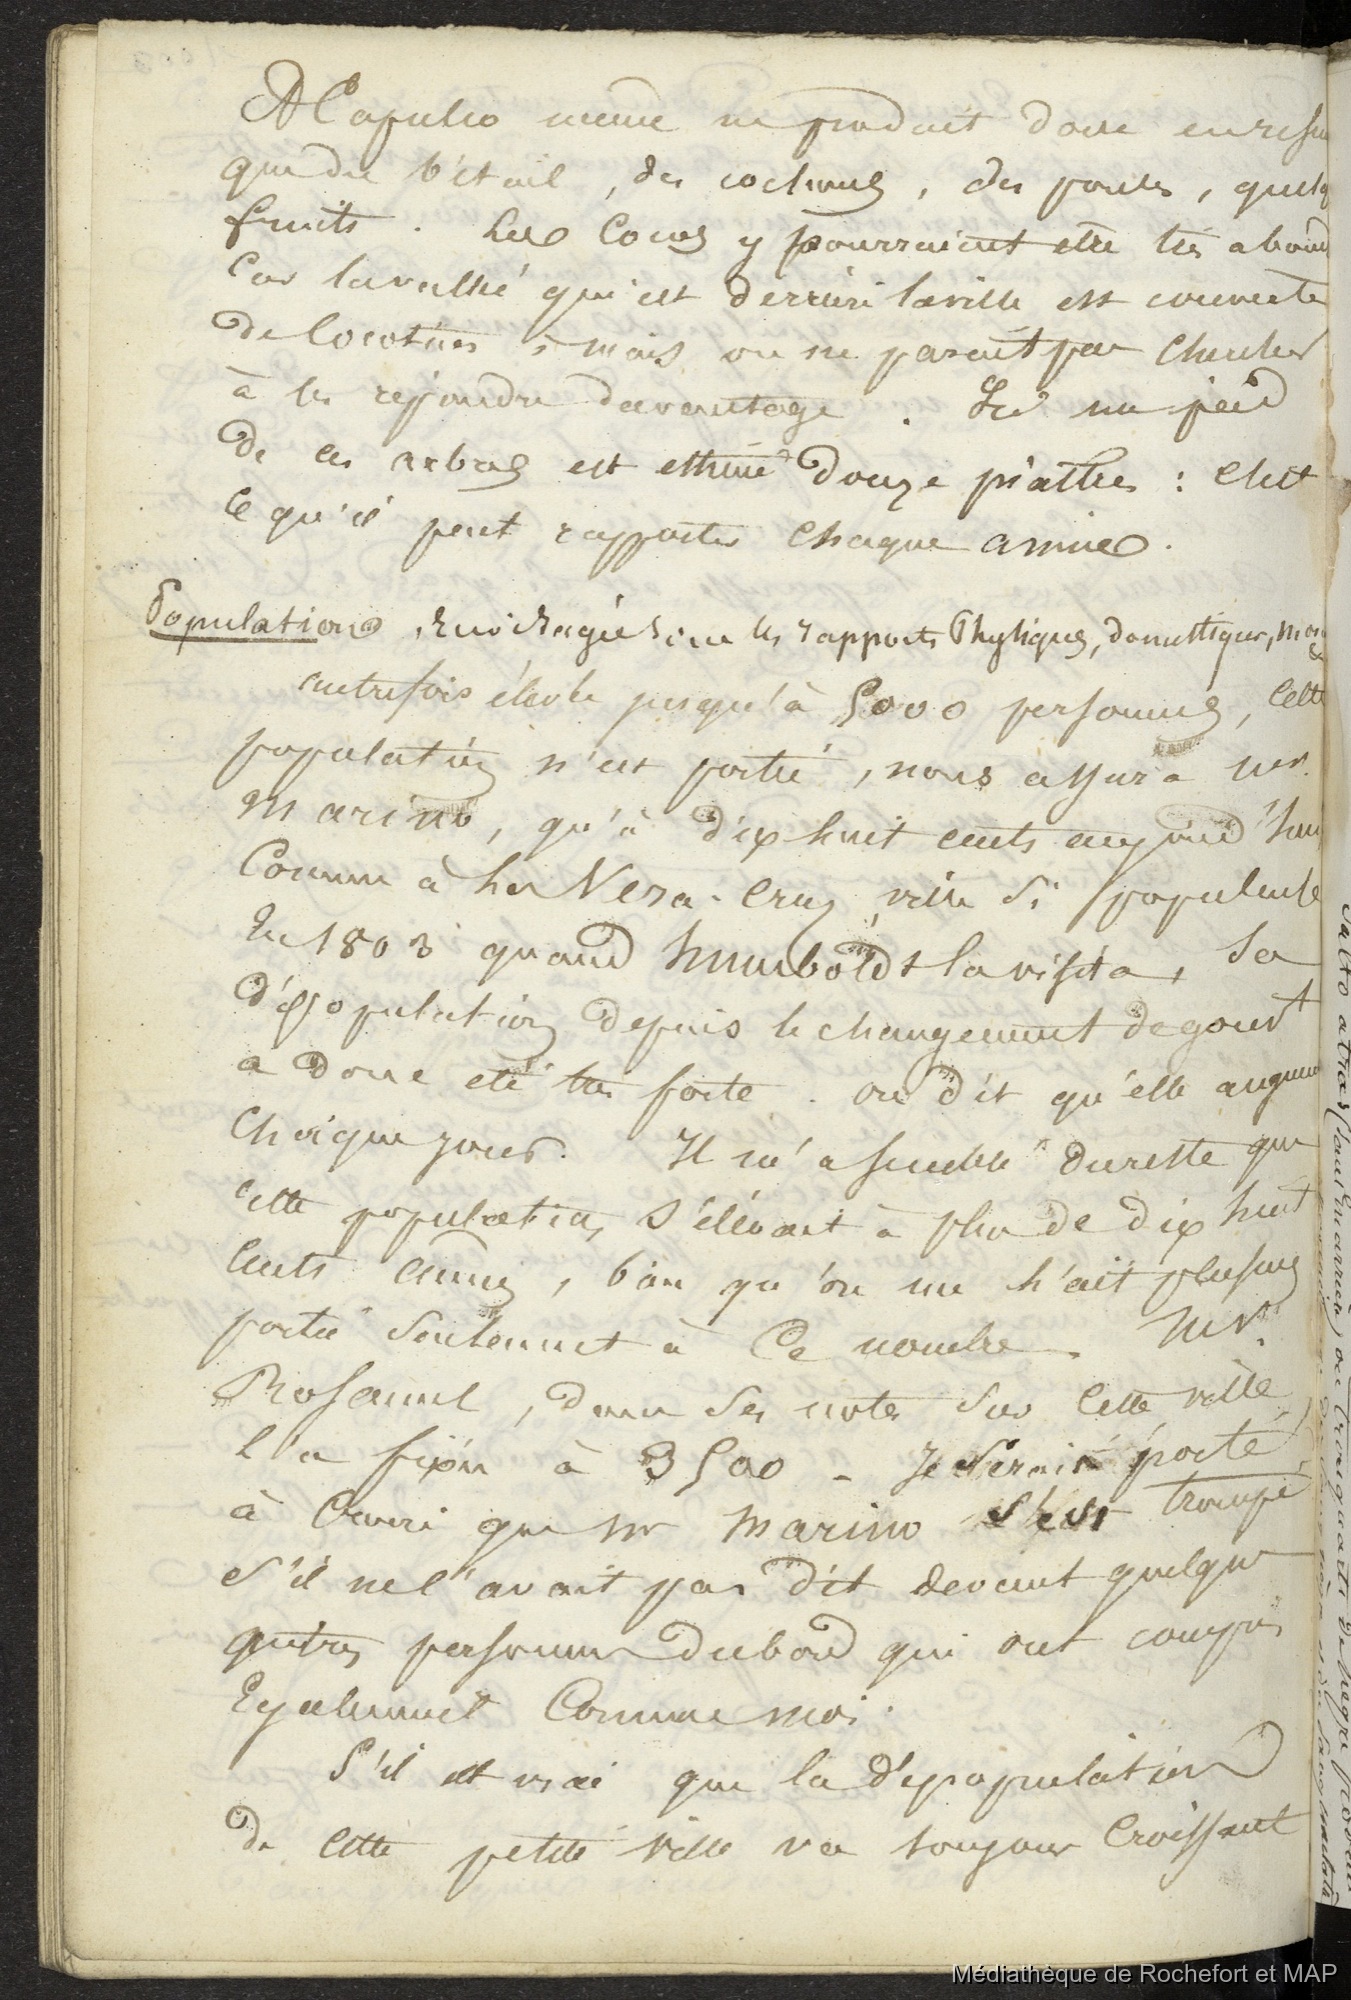 ACapulco meme ne produit donc en resu
que du bétail, des cochons, des poules, quelq
fruits. Les Cocos y pourraient etre très abond
Car la vallée qui est derrière la ville est couverte
de Cocotiers, mais on ne parait pas chercher
à les répandre davantage. Ici un pied
de ces arbres est estimé douze piastres : C'est
Ce qu'il peut rapporter Chaque année.
Population, Envisagée sous les rapports Physiques, domestiques, mor
autrefois élevée jusqu'à 5000 personnes, Cette
population n'est portée, nous assura mr.
Marino, qu'à dix huit cents aujourd'hui
Comme à La Vera-Cruz, ville si populeuse
En 1803 quand humboldt la visita, Sa
dépopulation depuis le changement de gouvt
a donc été très forte. on dit qu'elle augmen
Chaque jour. Il m'a semblé du reste que
Cette population s'élevait à plus de dix huit
Cents âmes, bien qu'on ne l'ait plusieurs
portée seulement à Ce nombre. Mr.
Rosamel, dans ses notes sur Cette ville,
l'a fixée à 3500 - Je serais porté
à Croire que mr Marino s'est trompé
S'il ne l'avait pas dit devant quelques
autres personnes du bord qui ont compris
Egalement Comme moi.
S'il est vrai que la dépopulation
de Cette petite ville va toujours Croissant
Salto atras (saut en arrière)
Médiathèque de Rochefort et MAP